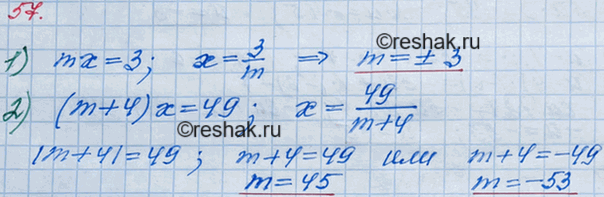 57.
©reshak.ru
1) mx = 3; x = 3/m => m = ± 3
2) (m+4)x = 49; x = 49/(m+4)
©reshak.ru
|m+4| = 49; m+4 = 49 или m+4 = -49
m = 45 m = -53